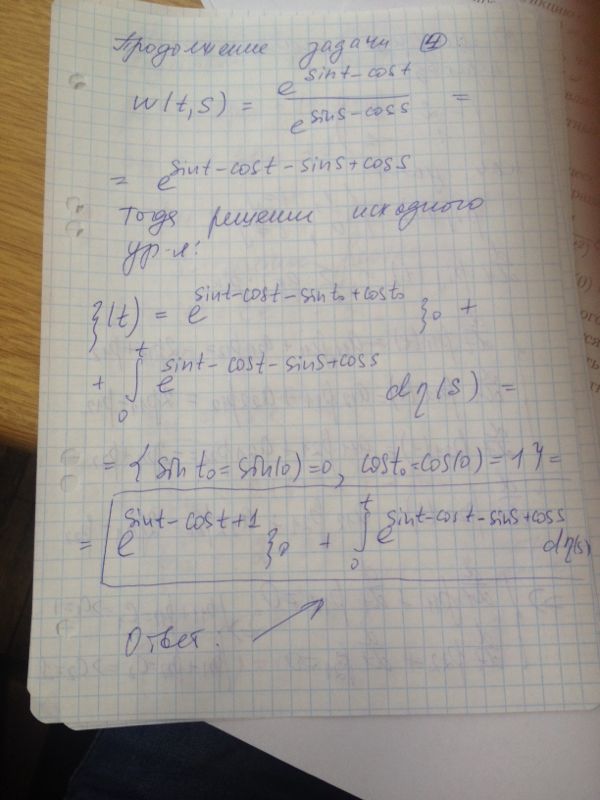 Продолжение задачи 4:
w(t,s) = e^{sint-cost} / e^{sins-coss} =
= e^{sint-cost-sins+coss}
Тогда решении исходного
ур-я:
ξ(t) = e^{sint-cost-sint₀+cost₀} ξ₀ +
+ ∫₀ᵗ e^{sint-cost-sins+coss} dη(s) =
= { sin t₀ = sin(0) = 0, cost₀ = cos(0) = 1 } =
= e^{sint-cost+1} ξ₀ + ∫₀ᵗ e^{sint-cost-sins+coss} dη(s)
Ответ: